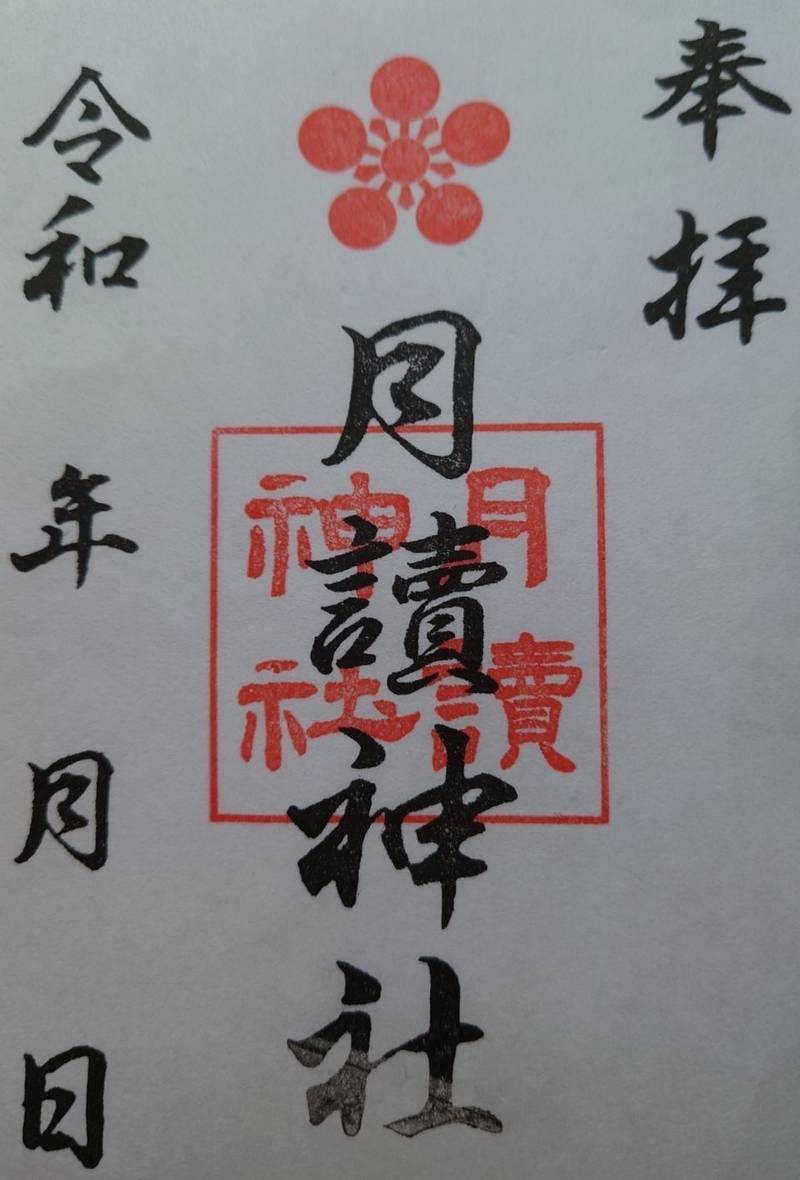 奉拝
月讀神社
月讀
神社
令和 年 月 日